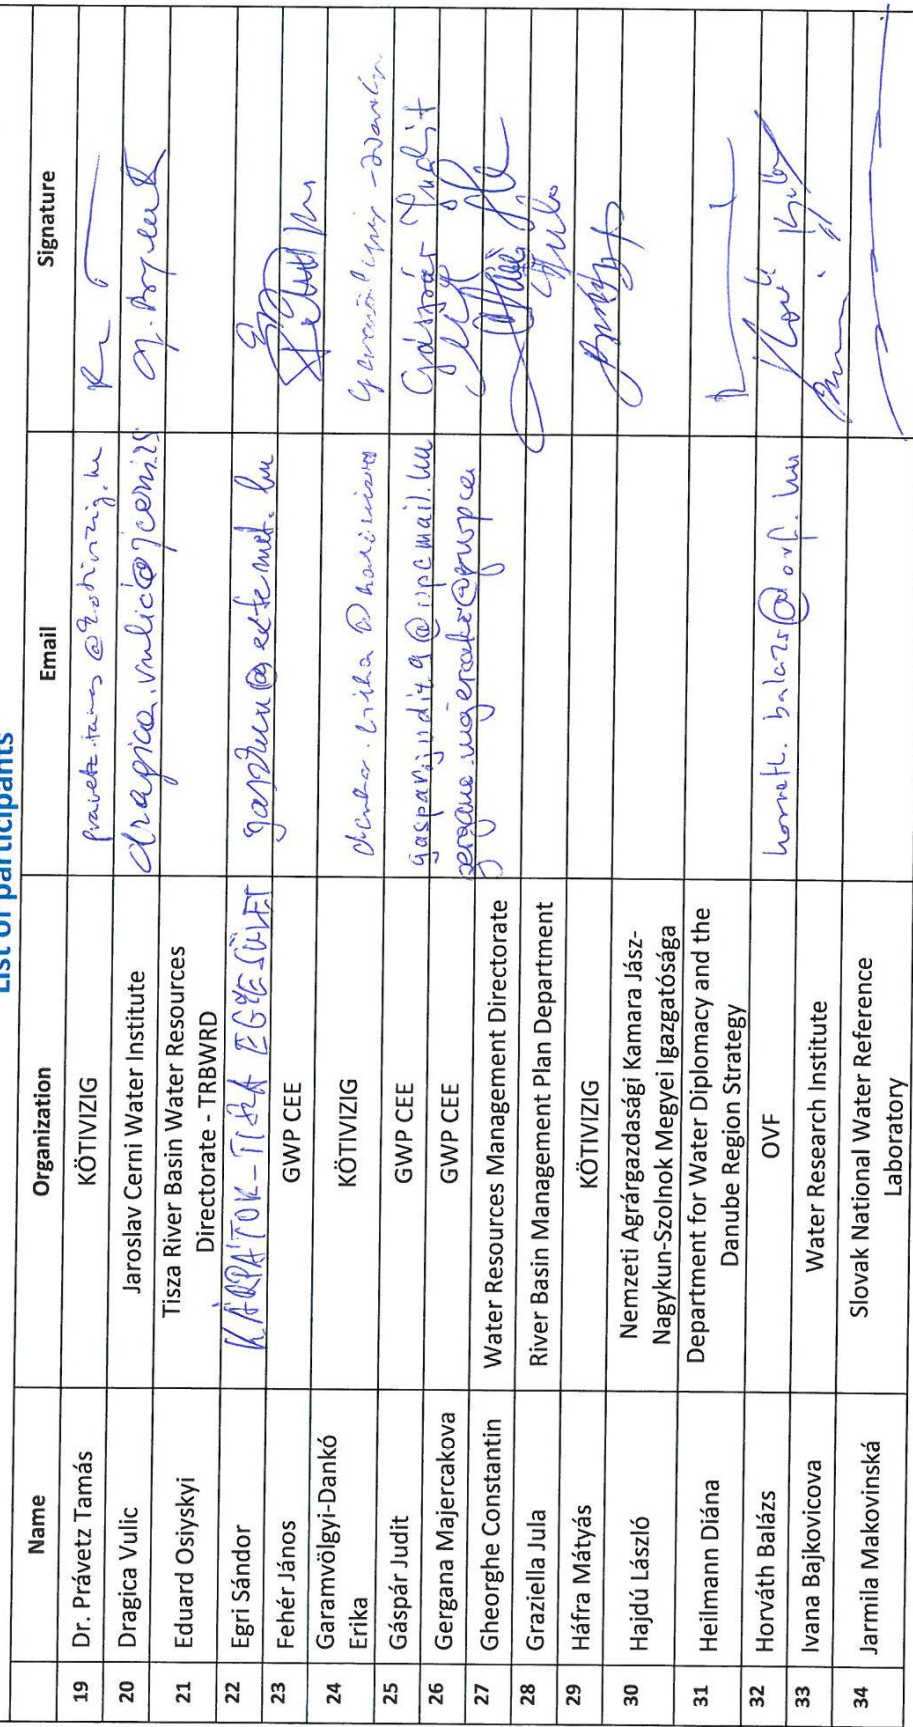 List of participants
Name Organization Email Signature
19 Dr. Právetz Tamás KÖTIVIZIG
20 Dragica Vulic Jaroslav Cerni Water Institute dragica.vulic@jcerni.rs
21 Eduard Osiyskyi Tisza River Basin Water Resources
Directorate - TRBWRD
22 Egri Sándor KÁRPÁTOK-TISZA EGYESÜLET
23 Fehér János GWP CEE
24 Garamvölgyi-Dankó
Erika KÖTIVIZIG
25 Gáspár Judit GWP CEE Gáspár Judit
26 Gergana Majercakova GWP CEE
27 Gheorghe Constantin Water Resources Management Directorate
28 Graziella Jula River Basin Management Plan Department
29 Háfra Mátyás KÖTIVIZIG
30 Hajdú László Nemzeti Agrárgazdasági Kamara Jász-
Nagykun-Szolnok Megyei Igazgatósága
31 Heilmann Diána Department for Water Diplomacy and the
Danube Region Strategy
32 Horváth Balázs OVF horvath.balazs@ovf.hu
33 Ivana Bajkovicova Water Research Institute
34 Jarmila Makovinská Slovak National Water Reference
Laboratory